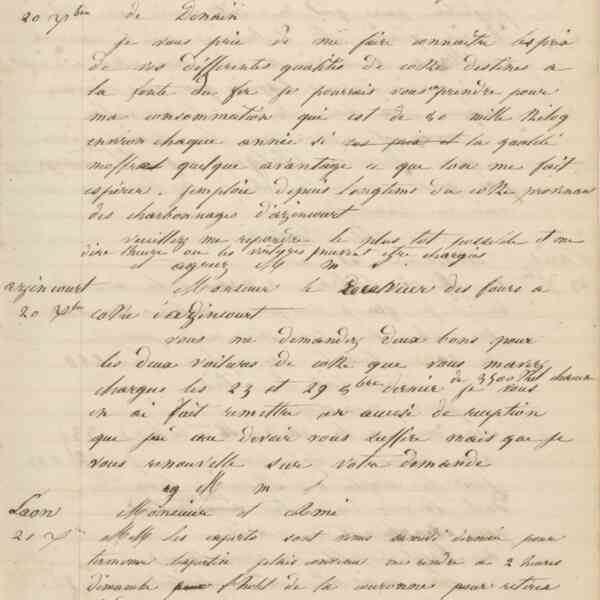 20 Xbre de Denain
je vous prie de me faire connaitre les prix
de vos différentes qualités de coke destinés a
la fonte du fer je pourrais vous prendre pour
ma consommation qui est de 50 mille Kilog
environ chaque année si ses prix et la qualité
m'offrait quelque avantage ce que l'on me fait
espérer. j'emploie depuis longtems du coke provenan
des charbonnages d'azincourt
veuillez me repondre le plus tot possible et me
dire l'heure ou les voitures peuvent etre chargés
et agreez M m
azincourt Monsieur le Receveur des fours a
20 Xbre coke d'azincourt
vous me demandez deux bons pour
les deux voitures de coke que vous m'avez
chargés les 23 et 29 9bre dernier de 3500 Kil chacune je vous
en ai fait remettre un accusé de reception
que j'ai cru devoir vous suffire mais que je
vous renouvelle sur votre demande
ag M m
Laon Monsieur et ami
21 X MM les experts sont venus samedi dernier pour
terminer l'expertise j'étais convenu me rendre a 2 heures
dimanche l'hotel de la couronne pour retirer